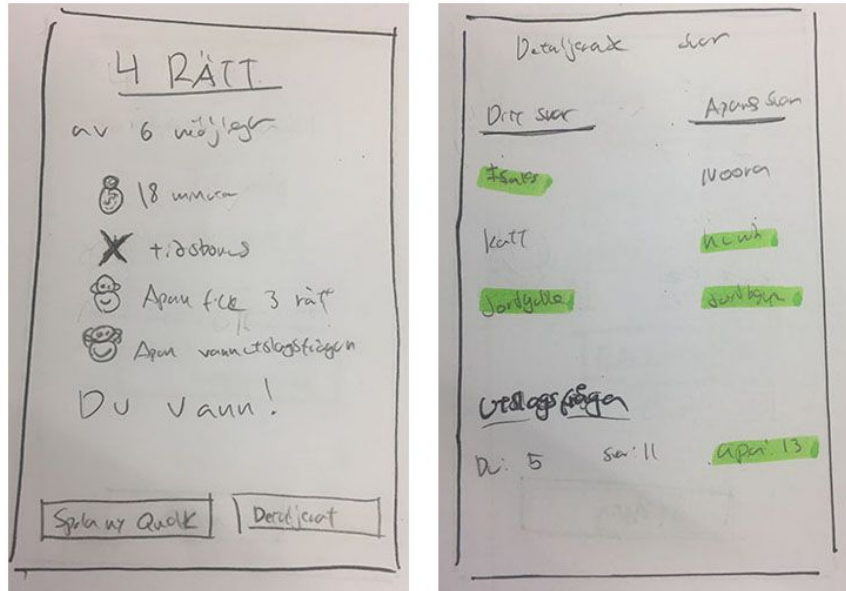 4 RÄTT
av 6 möjliga
18 minuter
X tidsbonus
Apan fick 3 rätt
Apan vann utslagsfrågan
Du vann!
Spela ny Detaljerat
Detaljerat svar
Ditt svar Apans svar
Noora
Katt
Jordgubbe
Utslagsfrågan
Du: 5 svar: 11 apa: 13